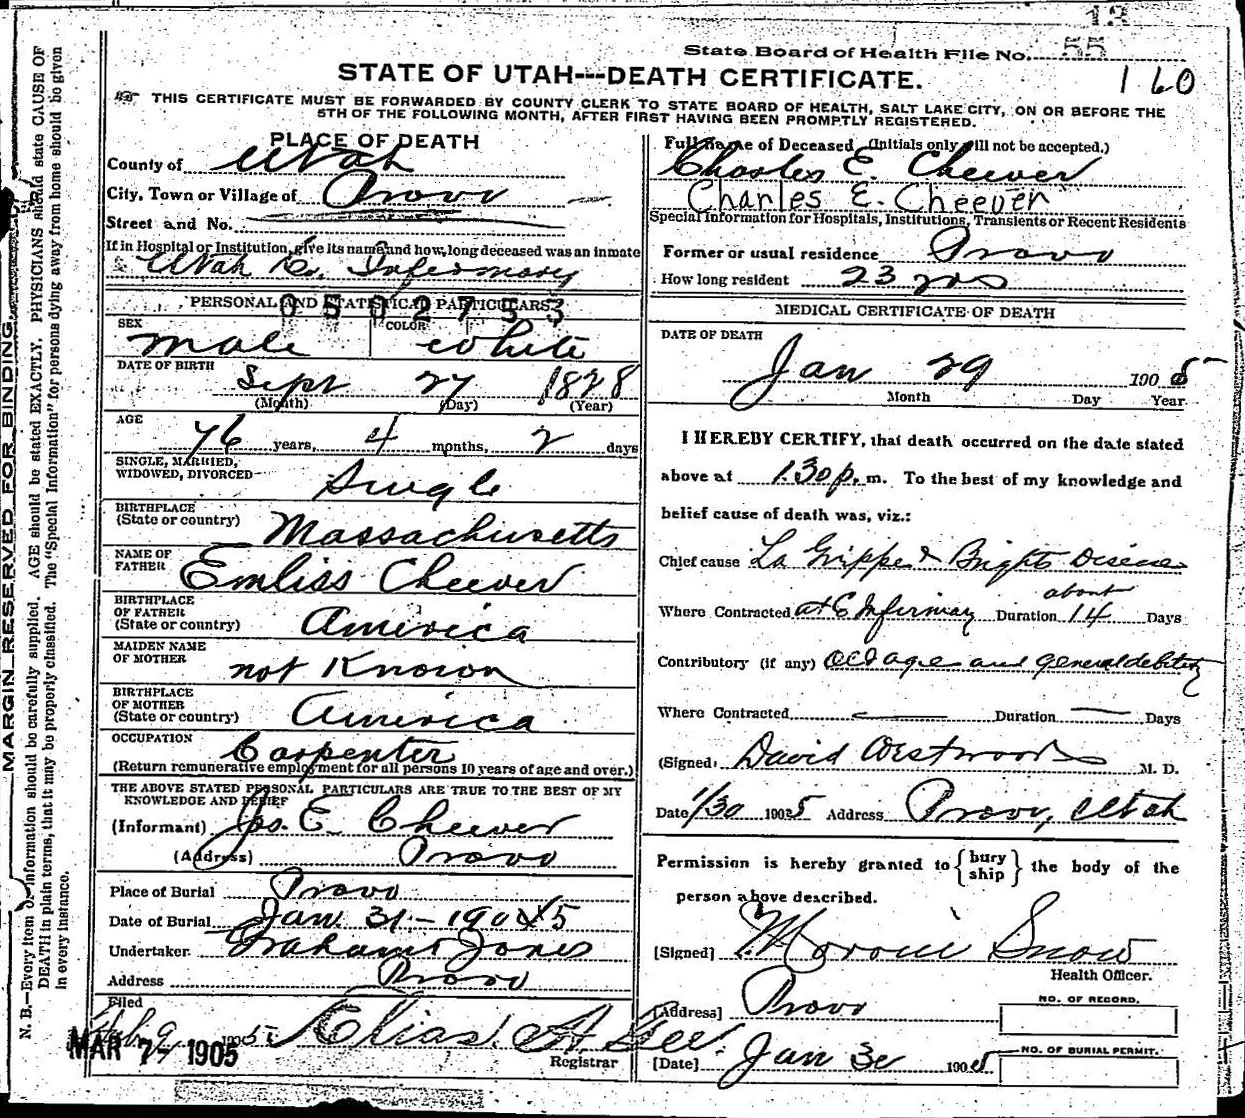 13
State Board of Health File No. 55
STATE OF UTAH---DEATH CERTIFICATE.
160
THIS CERTIFICATE MUST BE FORWARDED BY COUNTY CLERK TO STATE BOARD OF HEALTH, SALT LAKE CITY, ON OR BEFORE THE
5TH OF THE FOLLOWING MONTH, AFTER FIRST HAVING BEEN PROMPTLY REGISTERED.
PLACE OF DEATH
County of Utah
City, Town or Village of Provo
Street and No.
If in Hospital or Institution, give its name and how long deceased was an inmate
Utah Co. Infermary
PERSONAL AND STATISTICAL PARTICULARS
0502753
SEX male COLOR White
DATE OF BIRTH Sept 27 1828
(Month) (Day) (Year)
AGE 76 years, 4 months, 2 days
SINGLE, MARRIED,
WIDOWED, DIVORCED Single
BIRTHPLACE
(State or country) Massachusetts
NAME OF
FATHER Emliss Cheever
BIRTHPLACE
OF FATHER
(State or country) America
MAIDEN NAME
OF MOTHER not Known
BIRTHPLACE
OF MOTHER
(State or country) America
OCCUPATION Carpenter
(Return remunerative employment for all persons 10 years of age and over.)
THE ABOVE STATED PERSONAL PARTICULARS ARE TRUE TO THE BEST OF MY
KNOWLEDGE AND BELIEF
(Informant) Jos. E. Cheever
(Address) Provo
Place of Burial Provo
Date of Burial Jan. 31 - 1905
Undertaker Graham & Jones
Address Provo
Filed
1905 Elias A Gee.
MAR 7 1905
Registrar
Full Name of Deceased (Initials only will not be accepted.)
Charles E. Cheever
Charles E. Cheever
Special Information for Hospitals, Institutions, Transients or Recent Residents
Former or usual residence Provo
How long resident 23 yrs
MEDICAL CERTIFICATE OF DEATH
DATE OF DEATH
Jan 29 1905
Month Day Year
I HEREBY CERTIFY, that death occurred on the date stated
above at 1.30 p. m. To the best of my knowledge and
belief cause of death was, viz.:
Chief cause La Grippe & Brights Disease
about
Where Contracted at C Infirmary Duration 14 Days
Contributory (if any) old age and general debility
Where Contracted Duration Days
(Signed) David Westwood M. D.
Date 1/30 1905 Address Provo, Utah
Permission is hereby granted to { bury
ship } the body of the
person above described.
[Signed] Moroni Snow
Health Officer.
[Address] Provo
NO. OF RECORD.
NO. OF BURIAL PERMIT.
[Date] Jan 30 1905
MARGIN RESERVED FOR BINDING
N. B.—Every item of information should be carefully supplied. AGE should be stated EXACTLY. PHYSICIANS should state CAUSE OF
DEATH in plain terms, that it may be properly classified. The "Special Information" for persons dying away from home should be given
in every instance.